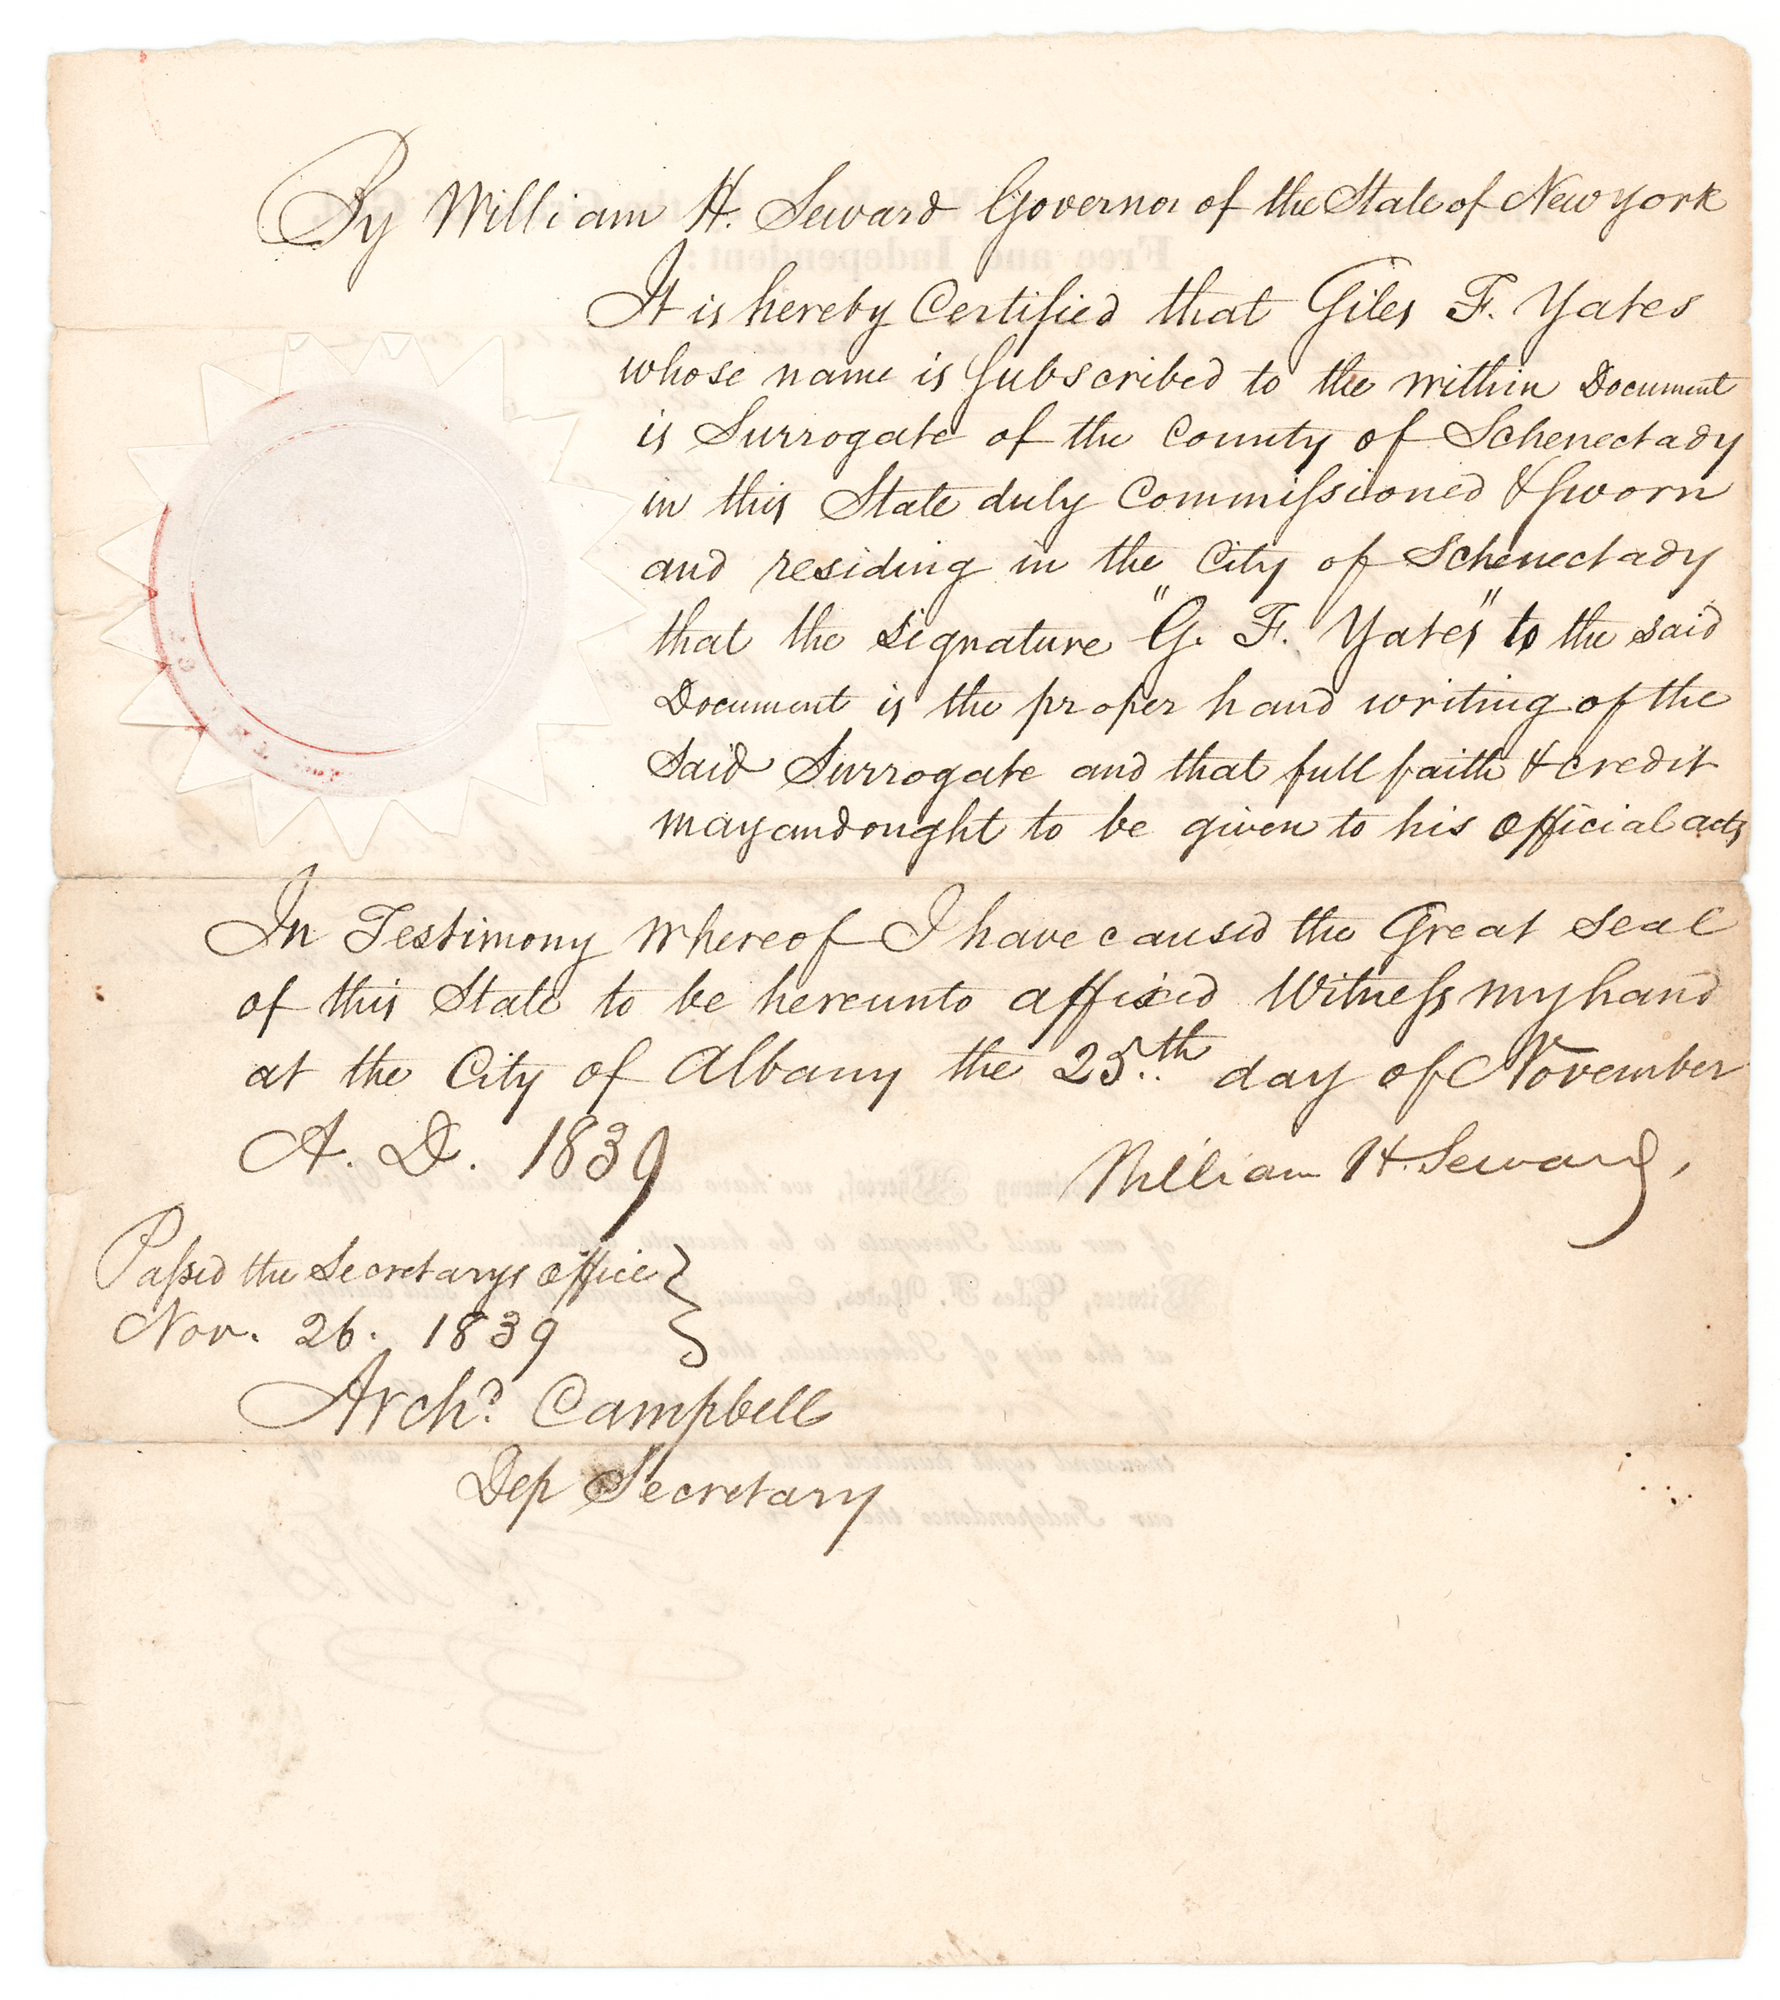 By William H. Seward Governor of the State of New York
It is hereby Certified that Giles F. Yates
whose name is Subscribed to the within Document
is Surrogate of the County of Schenectady
in this State duly Commissioned & Sworn
and residing in the City of Schenectady
that the signature "G. F. Yates" to the said
Document is the proper hand writing of the
Said Surrogate and that full faith & credit
may and ought to be given to his official acts
In Testimony whereof I have caused the Great Seal
of this State to be hereunto affixed Witness my hand
at the City of Albany the 25th day of November
A. D. 1839
William H. Seward,
Passed the Secretarys office
Nov. 26. 1839
Archd. Campbell
Dep Secretary